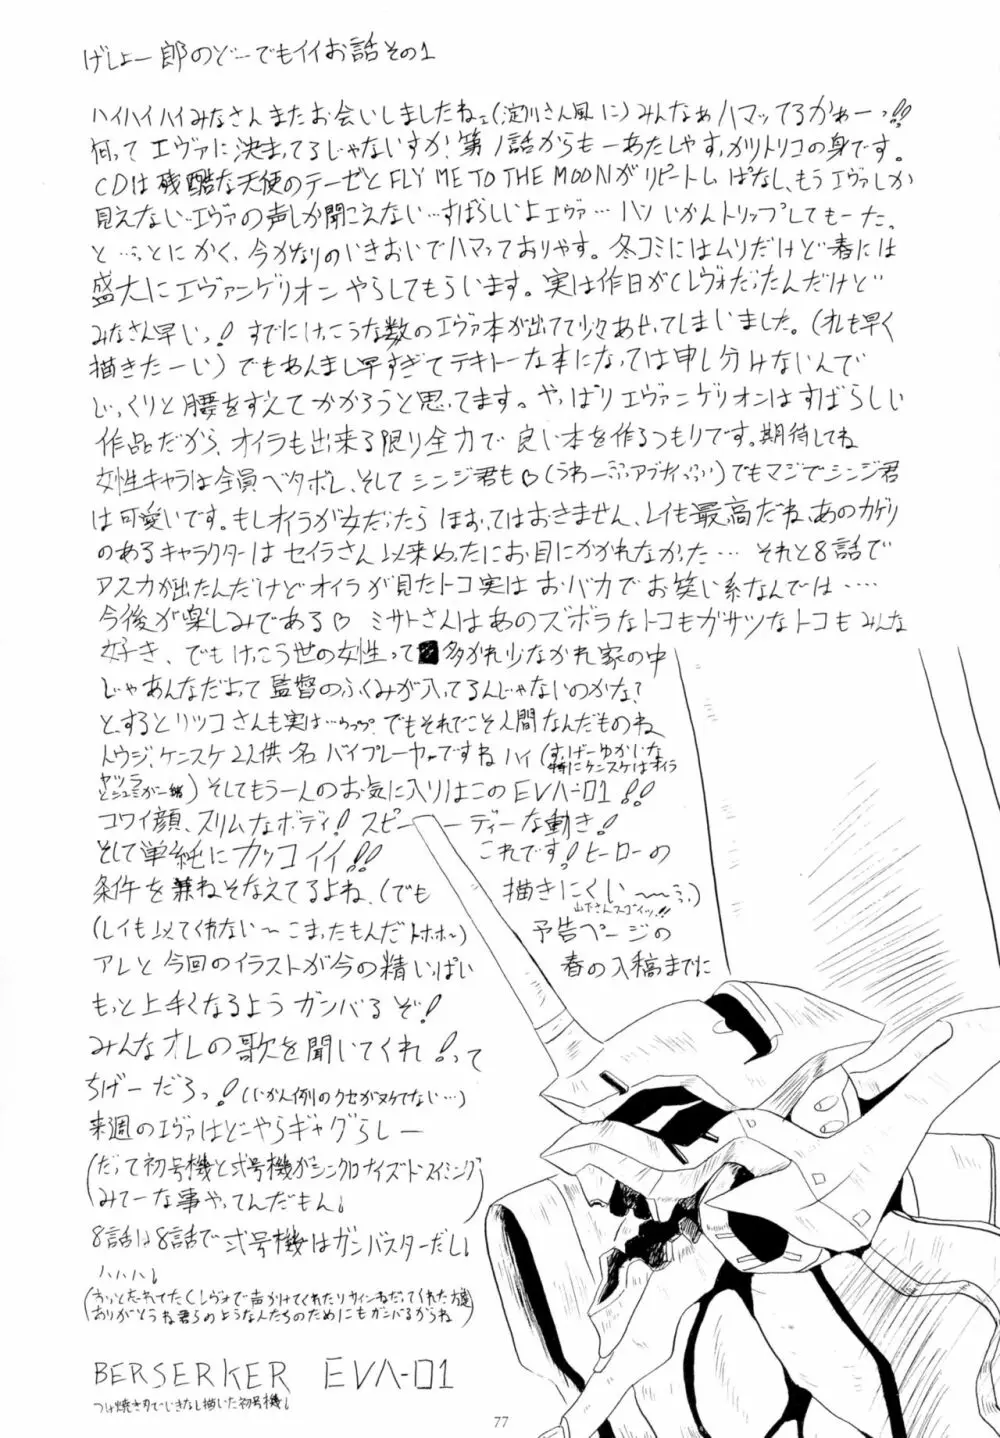 げしょー郎のどーでもイイお話その1
ハイハイハイみなさんまたお会いしましたねェ(淀川さん風に)みんなぁハマッてるかぁーっ!!
何って エヴァに決まってるじゃないすか! 第1話からもーあたしゃすっかりトリコの身です。
CDは残酷な天使のテーゼとFLY ME TO THE MOONがリピートしっぱなし、もうエヴァしか
見えない…エヴァの声しか聞こえない…すばらしいよエヴァ…ハッ いかんトリップしてもーた。
と…とにかく、今かなりのいきおいでハマっておりやす。冬コミにはムリだけど春には
盛大にエヴァンゲリオンやらしてもらいます。実は昨日がCレヴォだったんだけど
みなさん早いっ! すでにけっこうな数のエヴァ本が出てて少々あせってしまいました。(オレも早く
描きたーい)でもあんまし早すぎてテキトーな本になっては申し分けないんで
じっくりと腰をすえてかかろうと思ってます。やっぱりエヴァンゲリオンはすばらしい
作品だから、オイラも出来る限り全力で良い本を作るつもりです。期待してね
女性キャラは全員ベタボレ、そしてシンジ君も♡(うわーっアブナイっ)でもマジでシンジ君
は可愛いです。もしオイラが女だったらほおってはおきません、レイも最高だね、あのカゲリ
のあるキャラクターはセイラさん以来めったにお目にかかれなかった… それと8話で
アスカが出たんだけどオイラが見たトコ実はおバカでお笑い系なんでは……
今後が楽しみである♡ ミサトさんはあのズボラなトコもガサツなトコもみんな
好き、でもけっこう世の女性って多かれ少なかれ家の中
じゃあんなだよって監督のふくみが入ってるんじゃないのかな?
とするとリツコさんも実は…ウププ でもそれでこそ人間なんだものね
トウジ、ケンスケ2人供名バイプレーヤーですねハイ(すげーゆかいな
ヤツラ 特にケンスケはオイラ
とシュミが一緒)そしてもう一人のお気に入りはこのEVA-01!!
コワイ顔、スリムなボディ! スピーーディーな動き!
そして単純にカッコイイ!! これです!ヒーローの
条件を兼ねそなえてるよね。(でも描きにくい〜)
山下さんスゴイッ!!
(レイも似てくれない〜こまったもんだトホホ〜)予告ページの
アレと今回のイラストが今の精いっぱい 春の入稿までに
もっと上手くなるようガンバるぞ!
みんなオレの歌を聞いてくれ!って
ちげーだろっ!(いかん例のクセがヌケてない…)
来週のエヴァはどーやらギャグらしー
(だって初号機と弐号機がシンクロナイズドスイミング
みてーな事やってんだもん。)
8話は8話で弐号機はガンバスターだし。
ハハハ。
(おっと忘れてたCレヴォで声かけてくれたりサインねだってくれた方達
ありがとうね君らのような人たちのためにもガンバるからね)
BERSERKER EVA-01
つけ焼き刃でいきなし描いた初号機。
77